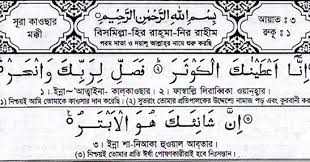 সূরা কাওছার
মক্কী
بِسْمِ اللهِ الرَّحْمٰنِ الرَّحِيْمِ
বিসমিল্লা-হির রাহ্মা-নির রাহীম
পরম দাতা ও দয়ালু আল্লাহর নামে শুরু করছি
আয়াত : ৩
রুকু : ১
إِنَّا أَعْطَيْنٰكَ الْكَوْثَرَ ۝ فَصَلِّ لِرَبِّكَ وَانْحَرْ ۝
১। ইন্না~ আ'ত্বোয়াইনা- কাল্কাওছার। ২। ফাছোয়াল্লি লিরাব্বিকা ওয়ান্হার।
(১) নিশ্চয়ই আমি তোমাকে কাওসার দান করেছি। (২) সুতরাং তোমার প্রতিপালকের উদ্দেশ্যে নামাজ পড় এবং কুরবানী কর
إِنَّ شَانِئَكَ هُوَ الْأَبْتَرُ ۝
৩। ইন্না শা-নিআকা হুওয়াল আব্তার।
(৩) নিশ্চয়ই তোমার প্রতি ঈর্ষা পোষণকারীরাই হবে নিঃসন্তান।